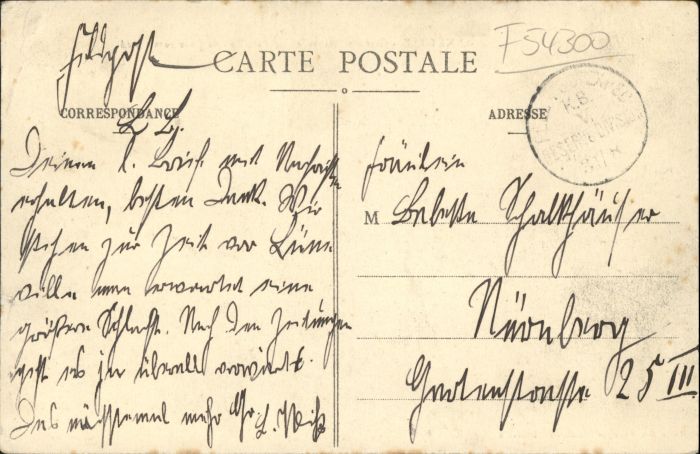 Feldpost
CARTE POSTALE
F54300
CORRESPONDANCE
L. L.
Deinen l. Brief mit Nachricht
erhalten, besten Dank. Wir
stehen zur Zeit vor Lüne
ville man erwartet eine
größere Schlacht. Nach den Zeitungen
geht es ja überall vorwärts.
Das nächstemal mehr Gr. L. Weiß
ADRESSE
K.B.
Fräulein
M Babette Schalkhäuser
Nürnberg
Gartenstrasse 25 III